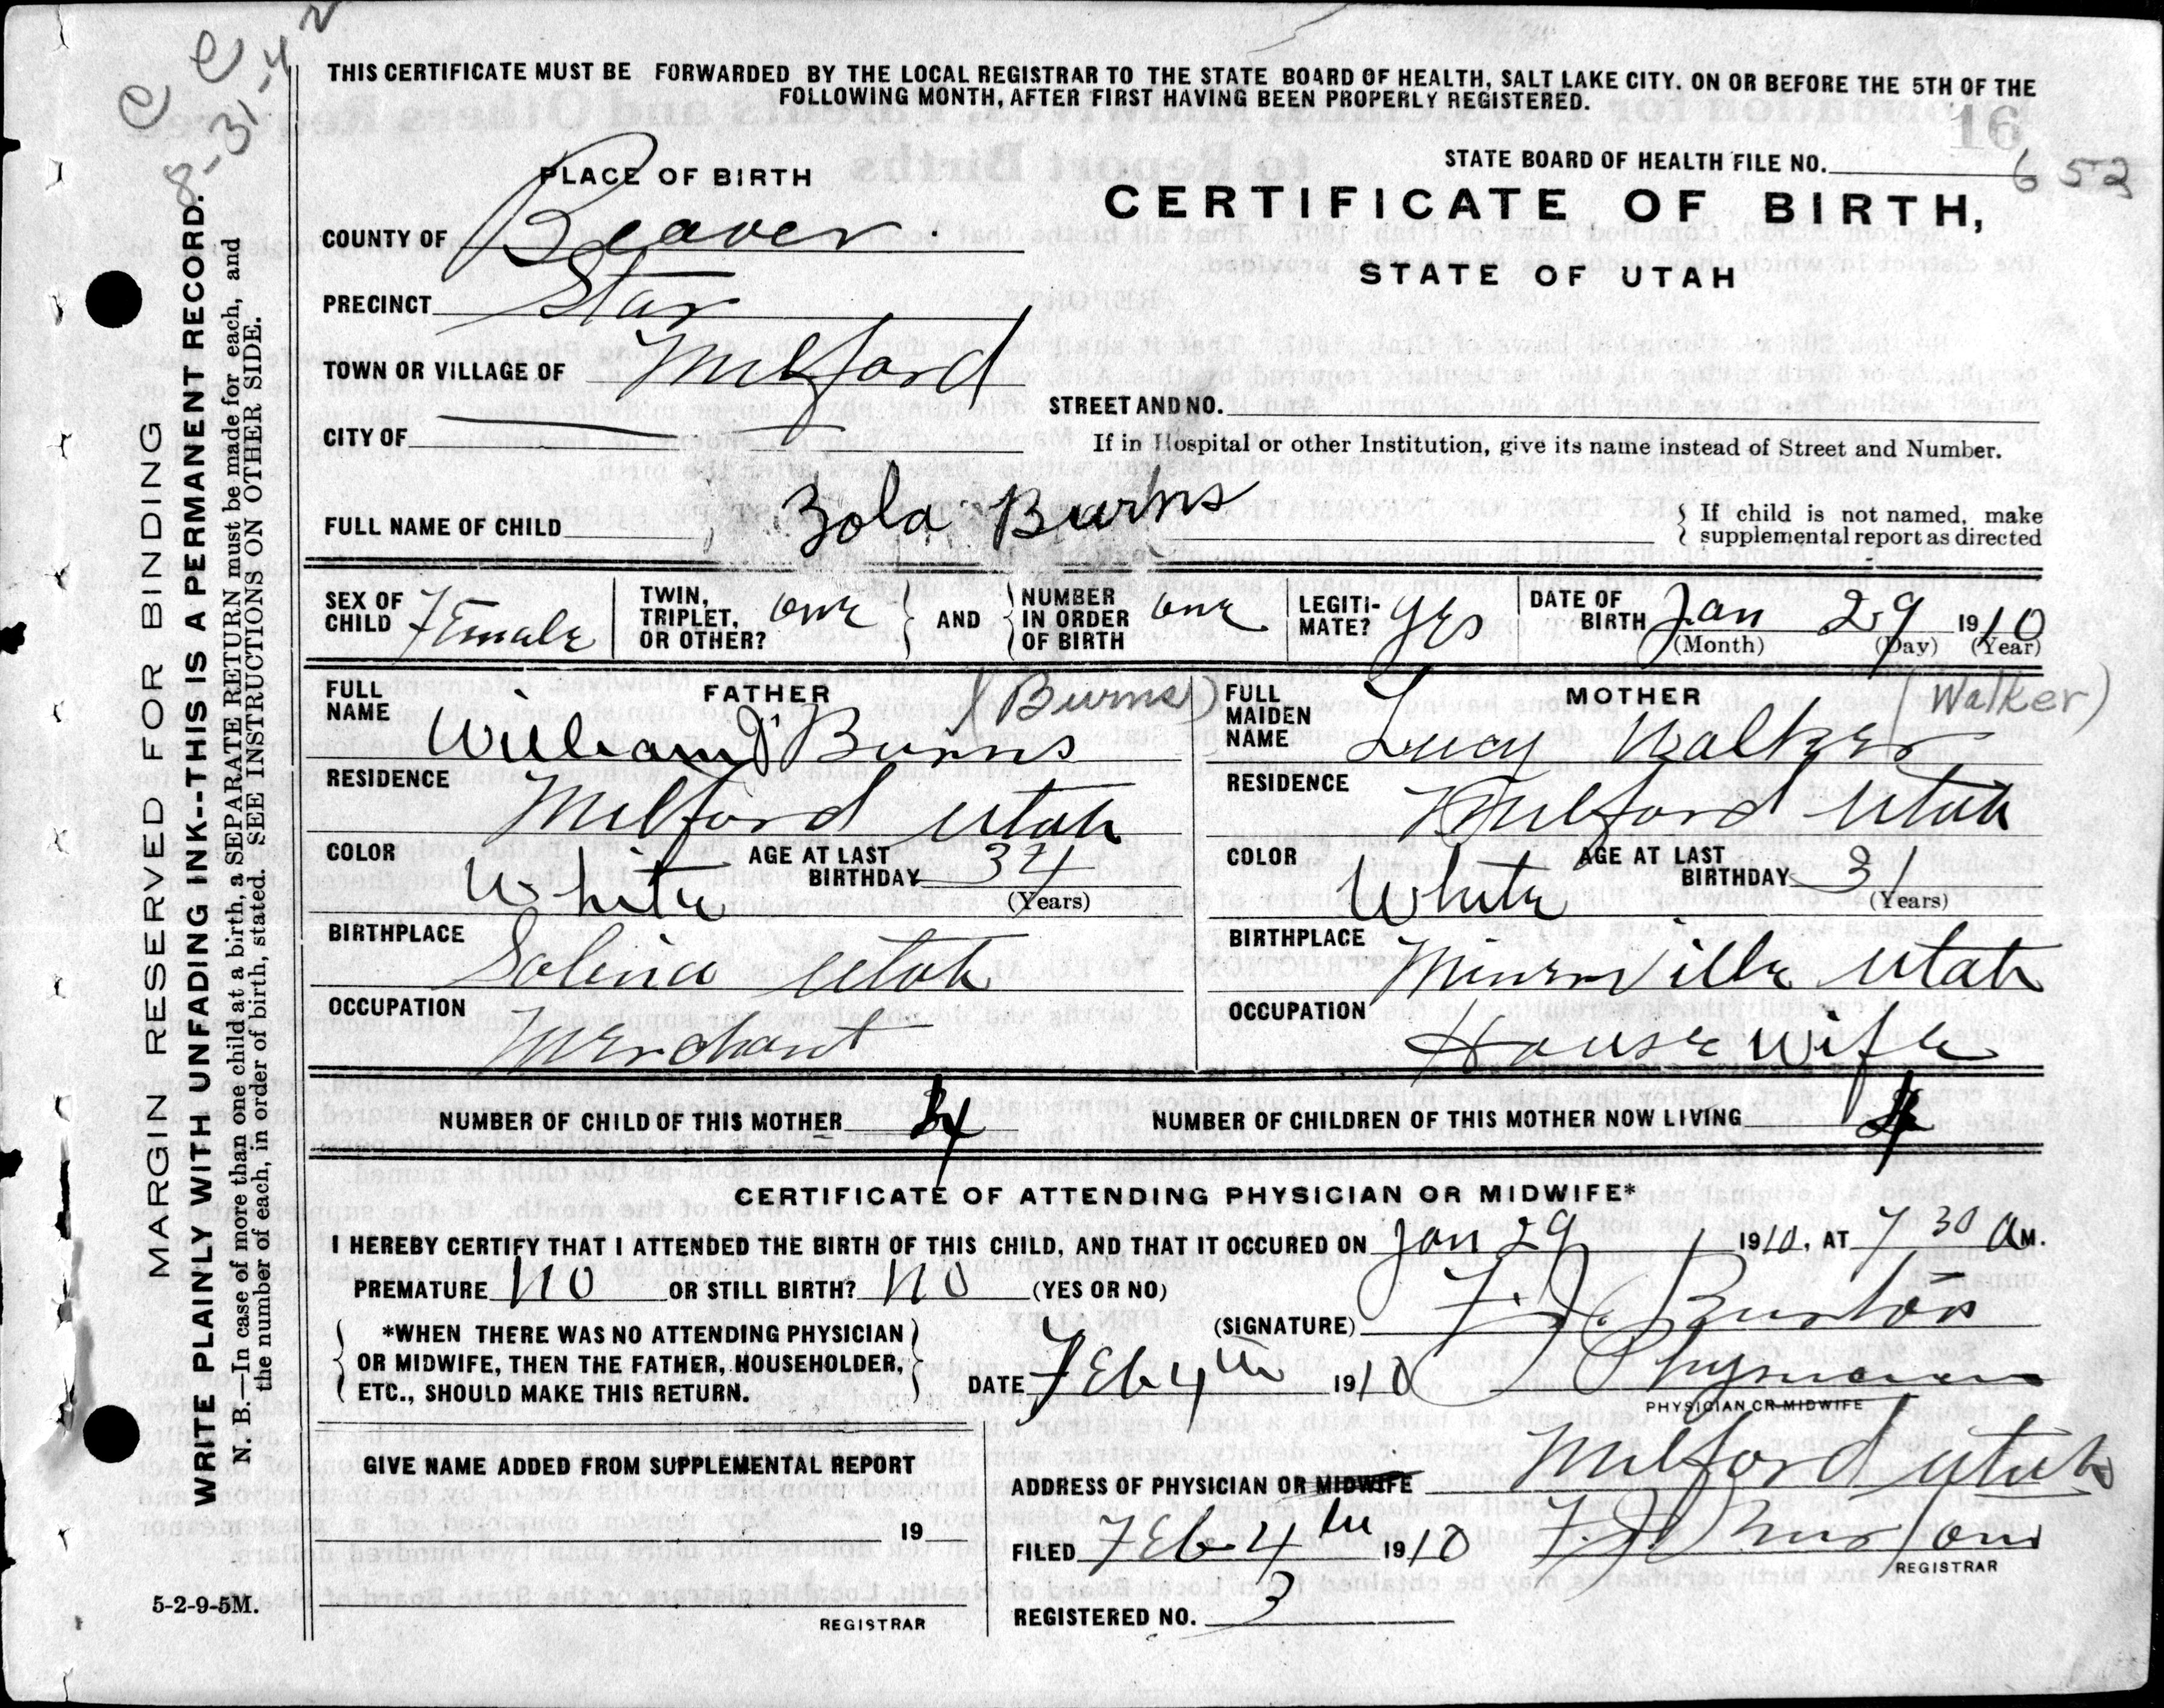 THIS CERTIFICATE MUST BE FORWARDED BY THE LOCAL REGISTRAR TO THE STATE BOARD OF HEALTH, SALT LAKE CITY. ON OR BEFORE THE 5TH OF THE
FOLLOWING MONTH, AFTER FIRST HAVING BEEN PROPERLY REGISTERED.
16
PLACE OF BIRTH
STATE BOARD OF HEALTH FILE NO. 652
CERTIFICATE OF BIRTH,
STATE OF UTAH
COUNTY OF Beaver.
PRECINCT Star
TOWN OR VILLAGE OF Milford
STREET AND NO.
CITY OF
If in Hospital or other Institution, give its name instead of Street and Number.
FULL NAME OF CHILD Zola Burns
If child is not named, make
supplemental report as directed
SEX OF CHILD Female
TWIN, TRIPLET, OR OTHER? one
AND
NUMBER IN ORDER OF BIRTH one
LEGITI-MATE? Yes
DATE OF BIRTH Jan 29 1910
(Month) (Day) (Year)
FATHER
FULL NAME William J Burns (Burns)
RESIDENCE Milford Utah
COLOR White
AGE AT LAST BIRTHDAY 34
(Years)
BIRTHPLACE Salina Utah
OCCUPATION Merchant
MOTHER
FULL MAIDEN NAME Lucy Walker (Walker)
RESIDENCE Milford Utah
COLOR White
AGE AT LAST BIRTHDAY 31
(Years)
BIRTHPLACE Minersville Utah
OCCUPATION House Wife
NUMBER OF CHILD OF THIS MOTHER 4
NUMBER OF CHILDREN OF THIS MOTHER NOW LIVING 4
CERTIFICATE OF ATTENDING PHYSICIAN OR MIDWIFE*
I HEREBY CERTIFY THAT I ATTENDED THE BIRTH OF THIS CHILD, AND THAT IT OCCURED ON Jan 29 1910, AT 7 30 A M.
PREMATURE NO OR STILL BIRTH? NO (YES OR NO)
*WHEN THERE WAS NO ATTENDING PHYSICIAN
OR MIDWIFE, THEN THE FATHER, HOUSEHOLDER,
ETC., SHOULD MAKE THIS RETURN.
(SIGNATURE) Burton
DATE Feb 4th 1910 Physician
PHYSICIAN OR MIDWIFE
GIVE NAME ADDED FROM SUPPLEMENTAL REPORT
19
REGISTRAR
ADDRESS OF PHYSICIAN OR MIDWIFE Milford Utah
FILED Feb 4th 1910
REGISTRAR
REGISTERED NO. 3
5-2-9-5M.
MARGIN RESERVED FOR BINDING
WRITE PLAINLY WITH UNFADING INK--THIS IS A PERMANENT RECORD.
N. B.—In case of more than one child at a birth, a SEPARATE RETURN must be made for each, and
the number of each, in order of birth, stated. SEE INSTRUCTIONS ON OTHER SIDE.
8-31-42